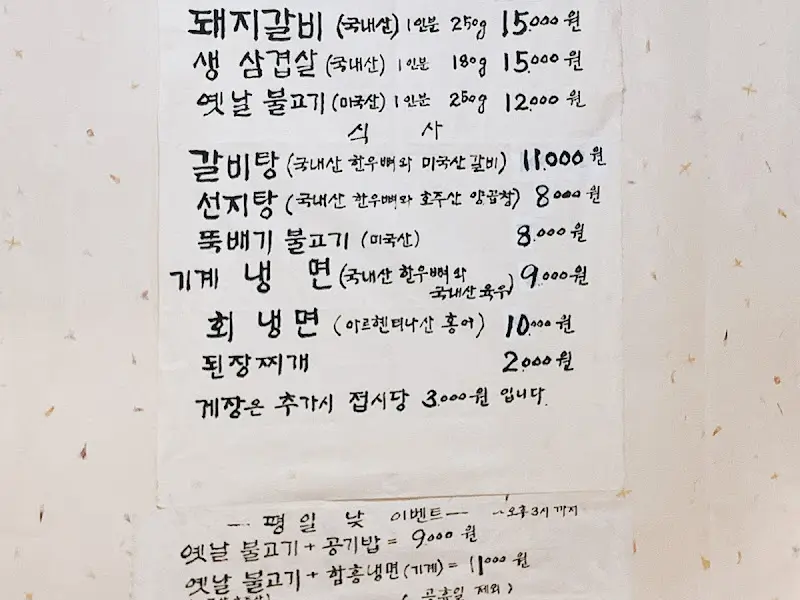 돼지갈비 (국내산) 1인분 250g 15.000원
생 삼겹살 (국내산) 1인분 180g 15.000원
옛날 불고기 (미국산) 1인분 250g 12.000원
식 사
갈비탕 (국내산 한우뼈와 미국산 갈비) 11.000원
선지탕 (국내산 한우뼈와 호주산 양곱창) 8.000원
뚝배기 불고기 (미국산) 8.000원
기계 냉 면 (국내산 한우뼈와 국내산 육우) 9.000원
회 냉면 (아르헨티나산 홍어) 10.000원
된장찌개 2.000원
게장은 추가시 접시당 3.000원 입니다.
- 평 일 낮 이벤트 - ~오후3시 까지
옛날 불고기 + 공기밥 = 9.000원
옛날 불고기 + 함흥냉면 (기계) = 11.000원
( 공휴일 제외 )